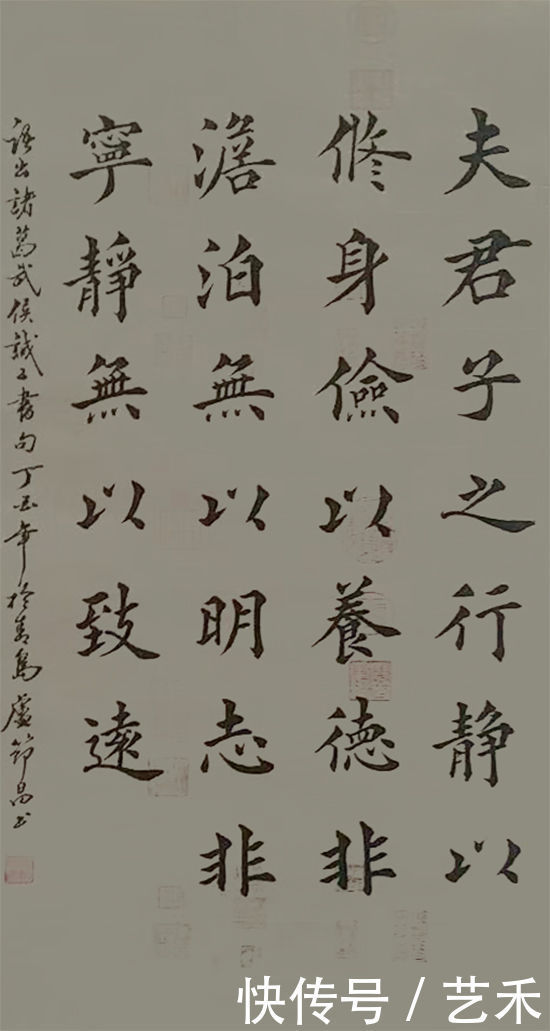 夫君子之行静以
修身儉以養德非
澹泊無以明志非
寧靜無以致遠
語出諸葛武侯誡子書句丁丑年於青島盧節昌書
快传号 / 艺禾